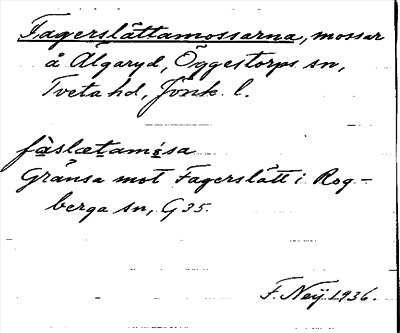 Fagerslättamossarna, mossar
å Älgaryd, Öggestorps sn,
Tveta hd, Jönk. l.
fàslætamósa
Gränsa mot Fagerslätt i Rog-
berga sn, G 35.
F. Neij 1936.